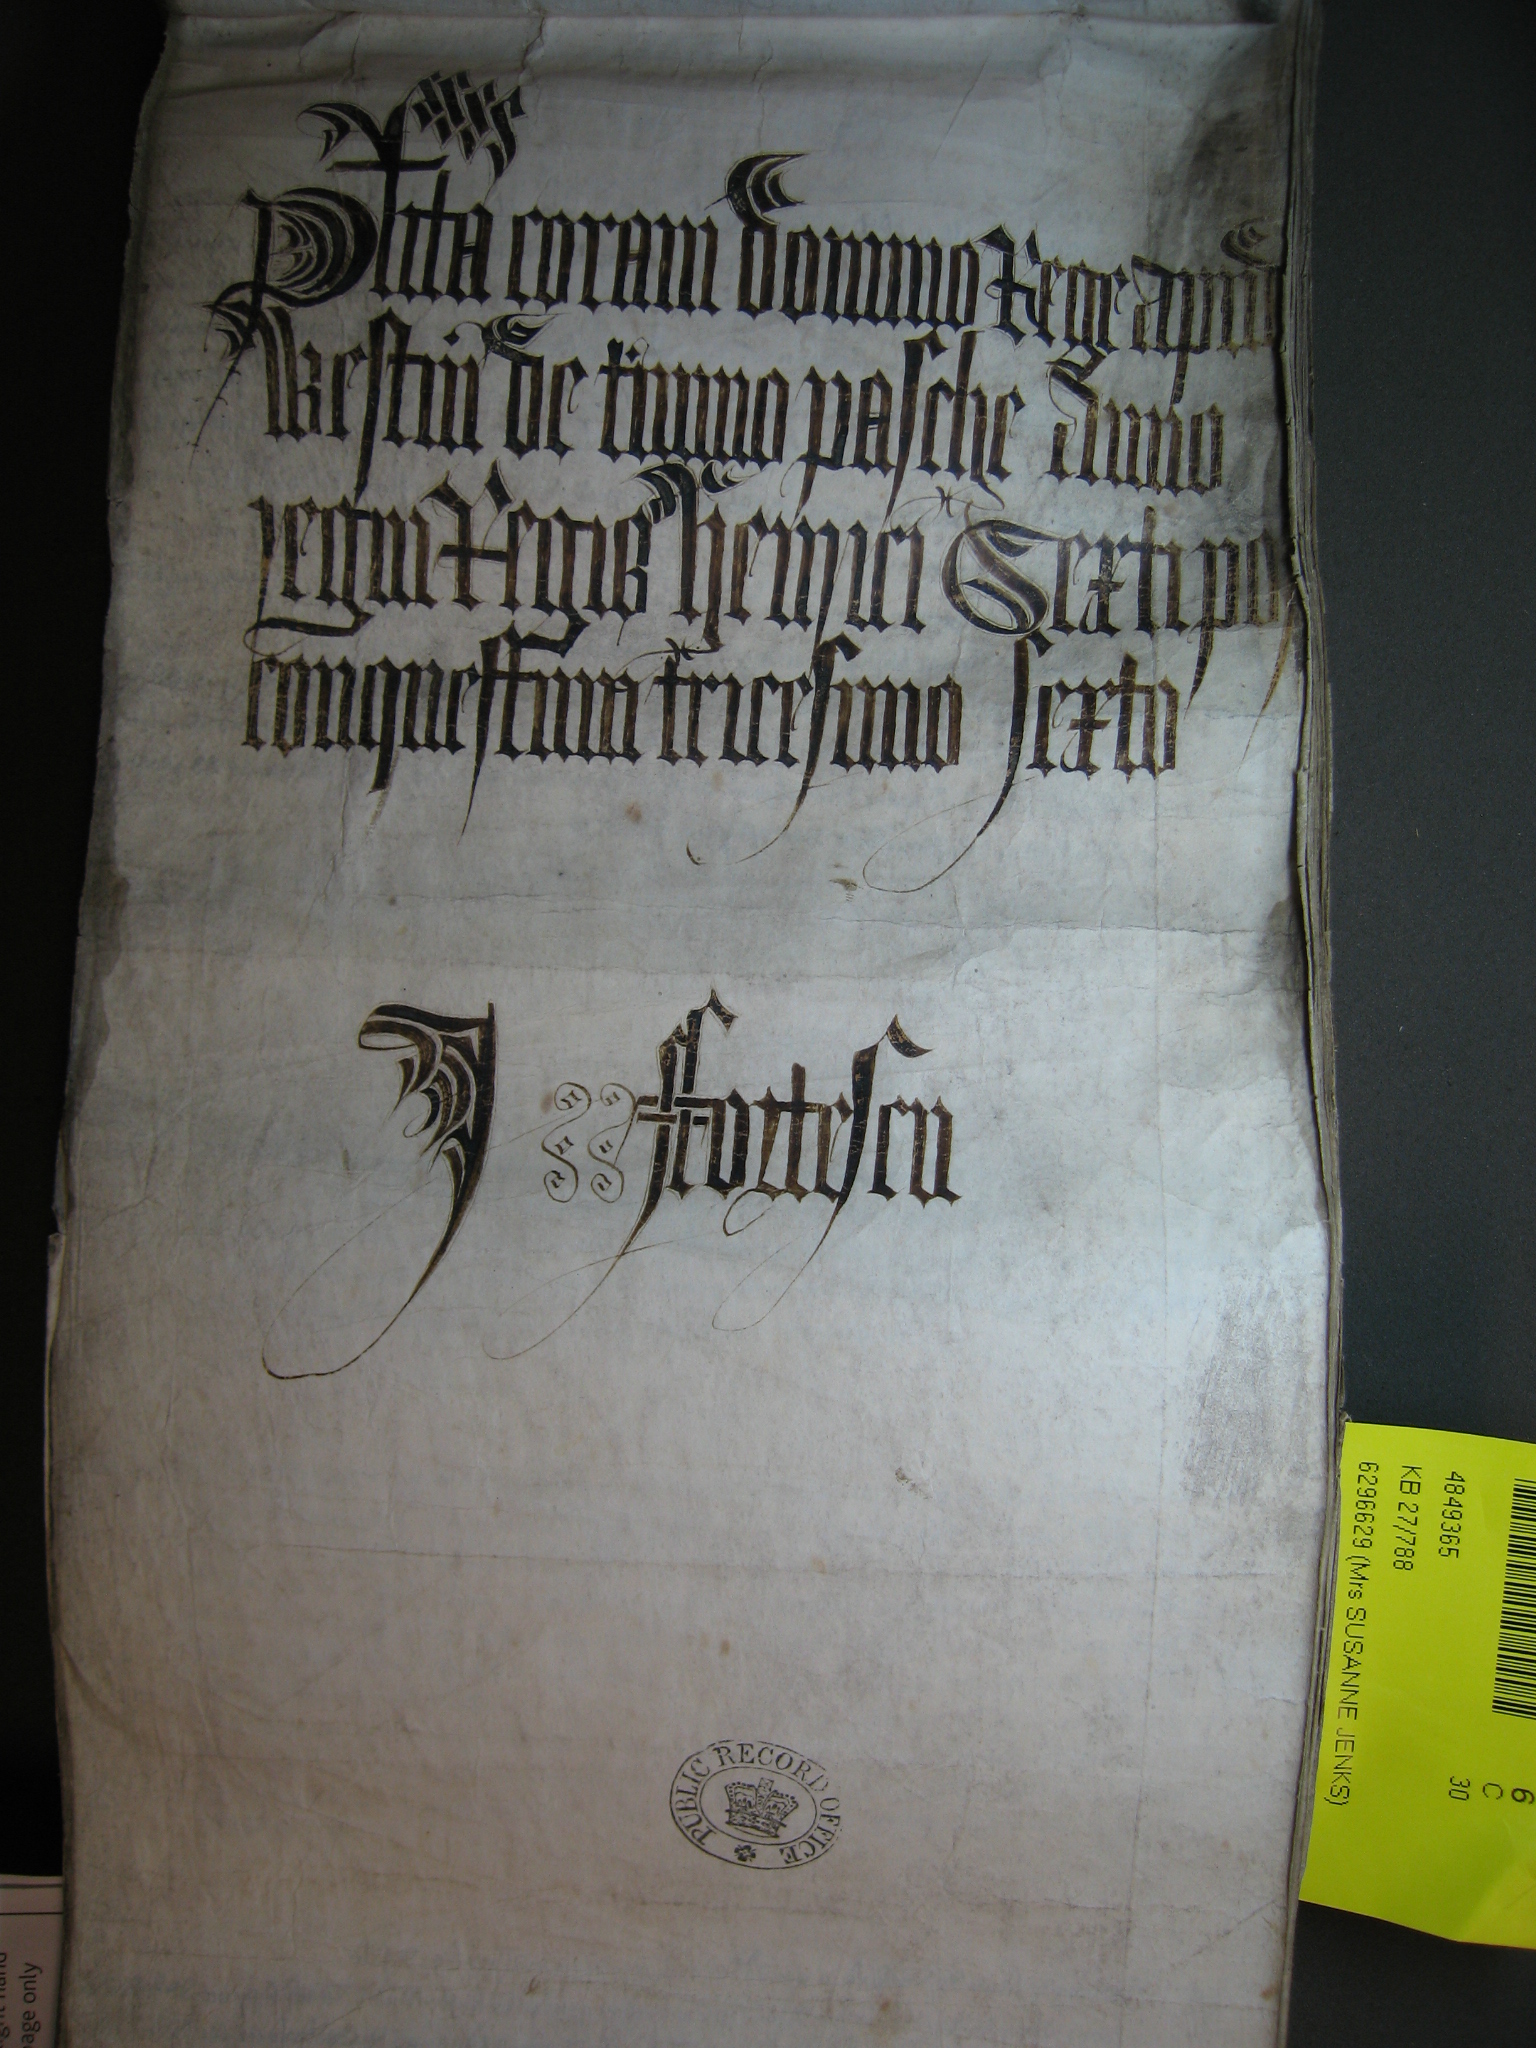 Plita coram domino Rege apud
Westm de termino pasche Anno
regni Regis henrici Sexti post
conquestum tricesimo sexto
J ffortescu
PUBLIC RECORD OFFICE
4849365
KB 27/788
6296629 (Mrs SUSANNE JENKS)
6
C
30
page only